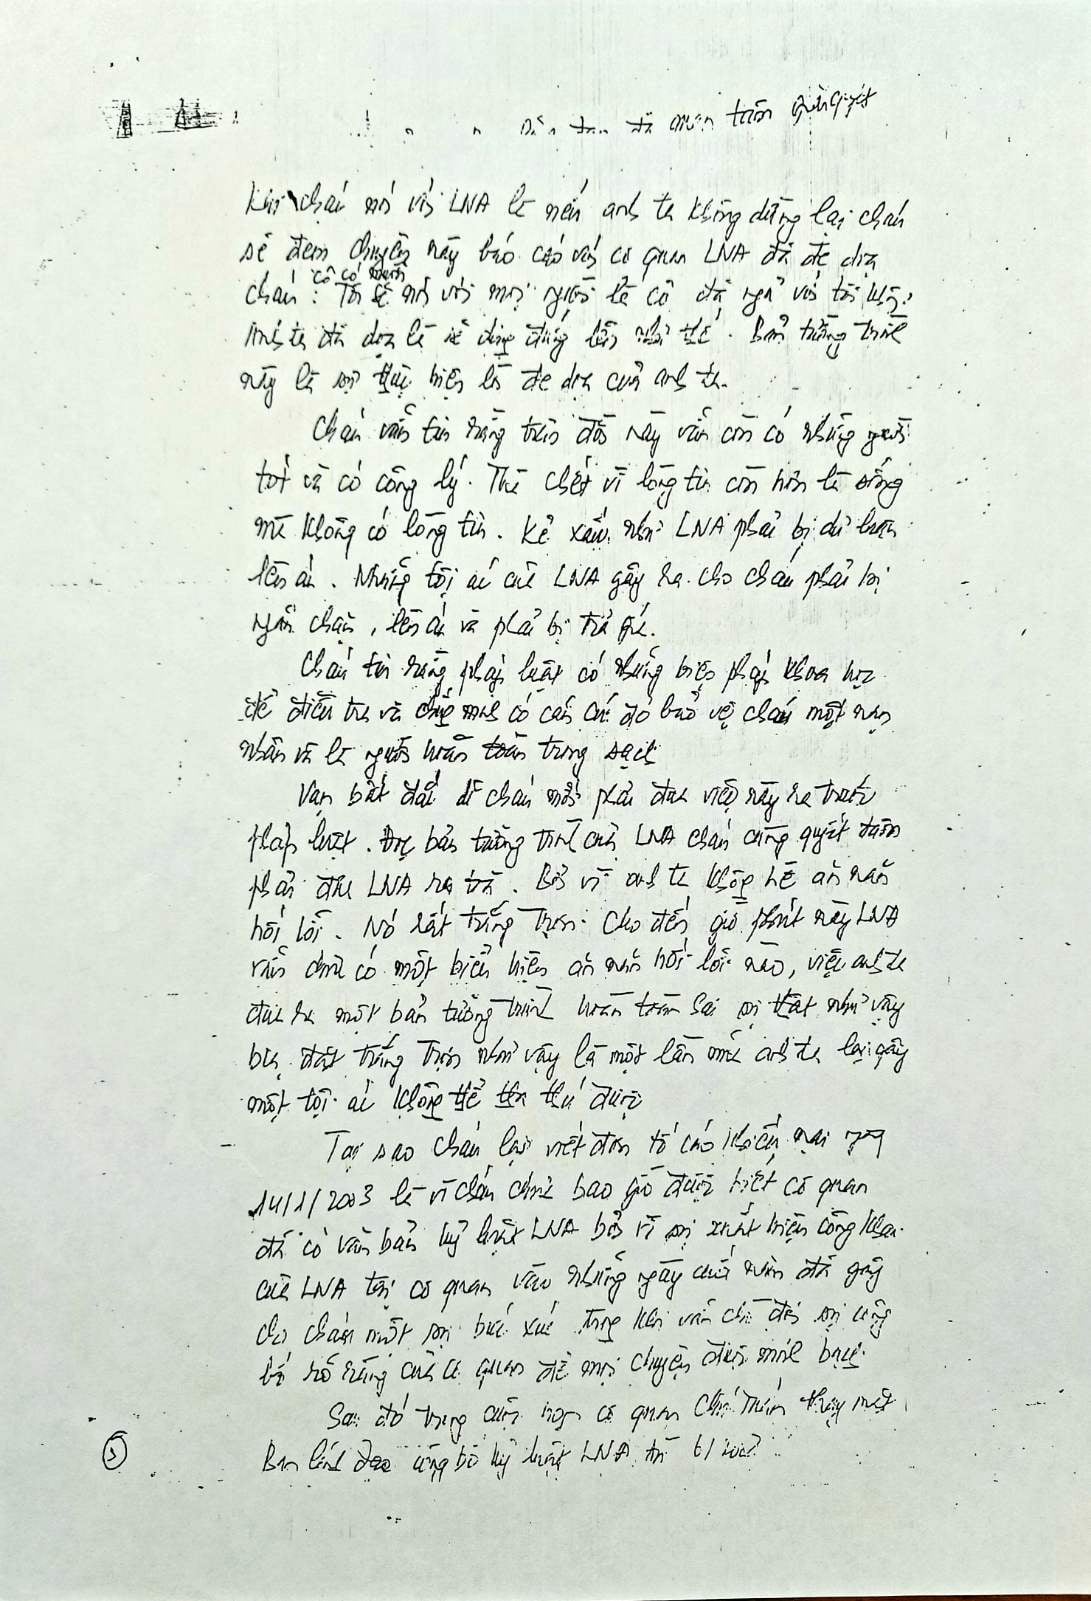 quan tâm giải quyết
Khi cháu nói với LNA là nếu anh ta không dừng lại cháu
sẽ đem chuyện này báo cáo với cơ quan LNA đã đe dọa
cô có muốn
cháu: Tôi sẽ nói với mọi người là cô đã ngủ với tôi không.
Anh ta đã dọa là sẽ dựng đứng lên như thế. Bản tường trình
này là sự thực hiện lời đe dọa của anh ta.
Cháu vẫn tin rằng trên đời này vẫn còn có những người
tốt và có công lý. Thà chết vì lòng tin còn hơn là sống
mà không có lòng tin. Kẻ xấu như LNA phải bị dư luận
lên án. Những tội ác của LNA gây ra cho cháu phải bị
ngăn chặn, lên án và phải bị trả giá.
Cháu tin rằng pháp luật có những biện pháp khoa học
để điều tra và chứng minh có căn cứ để bảo vệ cháu một nạn
nhân và là người hoàn toàn trong sạch
Vạn bất đắc dĩ cháu mới phải đưa việc này ra trước
pháp luật. Đọc bản tường trình của LNA cháu càng quyết tâm
phải đưa LNA ra tòa. Bởi vì anh ta không hề ăn năn
hối lỗi. Nó rất trắng trợn. Cho đến giờ phút này LNA
vẫn chưa có một biểu hiện ăn năn hối lỗi nào, việc anh ta
đưa ra một bản tường trình hoàn toàn sai sự thật như vậy
bịa đặt trắng trợn như vậy là một lần nữa anh ta lại gây
một tội ác không thể tha thứ được
Tại sao cháu lại viết đơn tố cáo khiếu nại ngày
14/1/2003 là vì cháu chưa bao giờ được biết cơ quan
đã có văn bản kỷ luật LNA bởi vì sự xuất hiện công khai
của LNA tại cơ quan vào những ngày cuối năm đã gây
cho cháu một sự bức xúc trong khi vẫn chờ đợi sự công
bố rõ ràng của cơ quan để mọi chuyện được minh bạch.
Sau đó trong cuộc họp cơ quan chú Tuấn thay mặt
Ban lãnh đạo công bố kỷ luật LNA từ
3